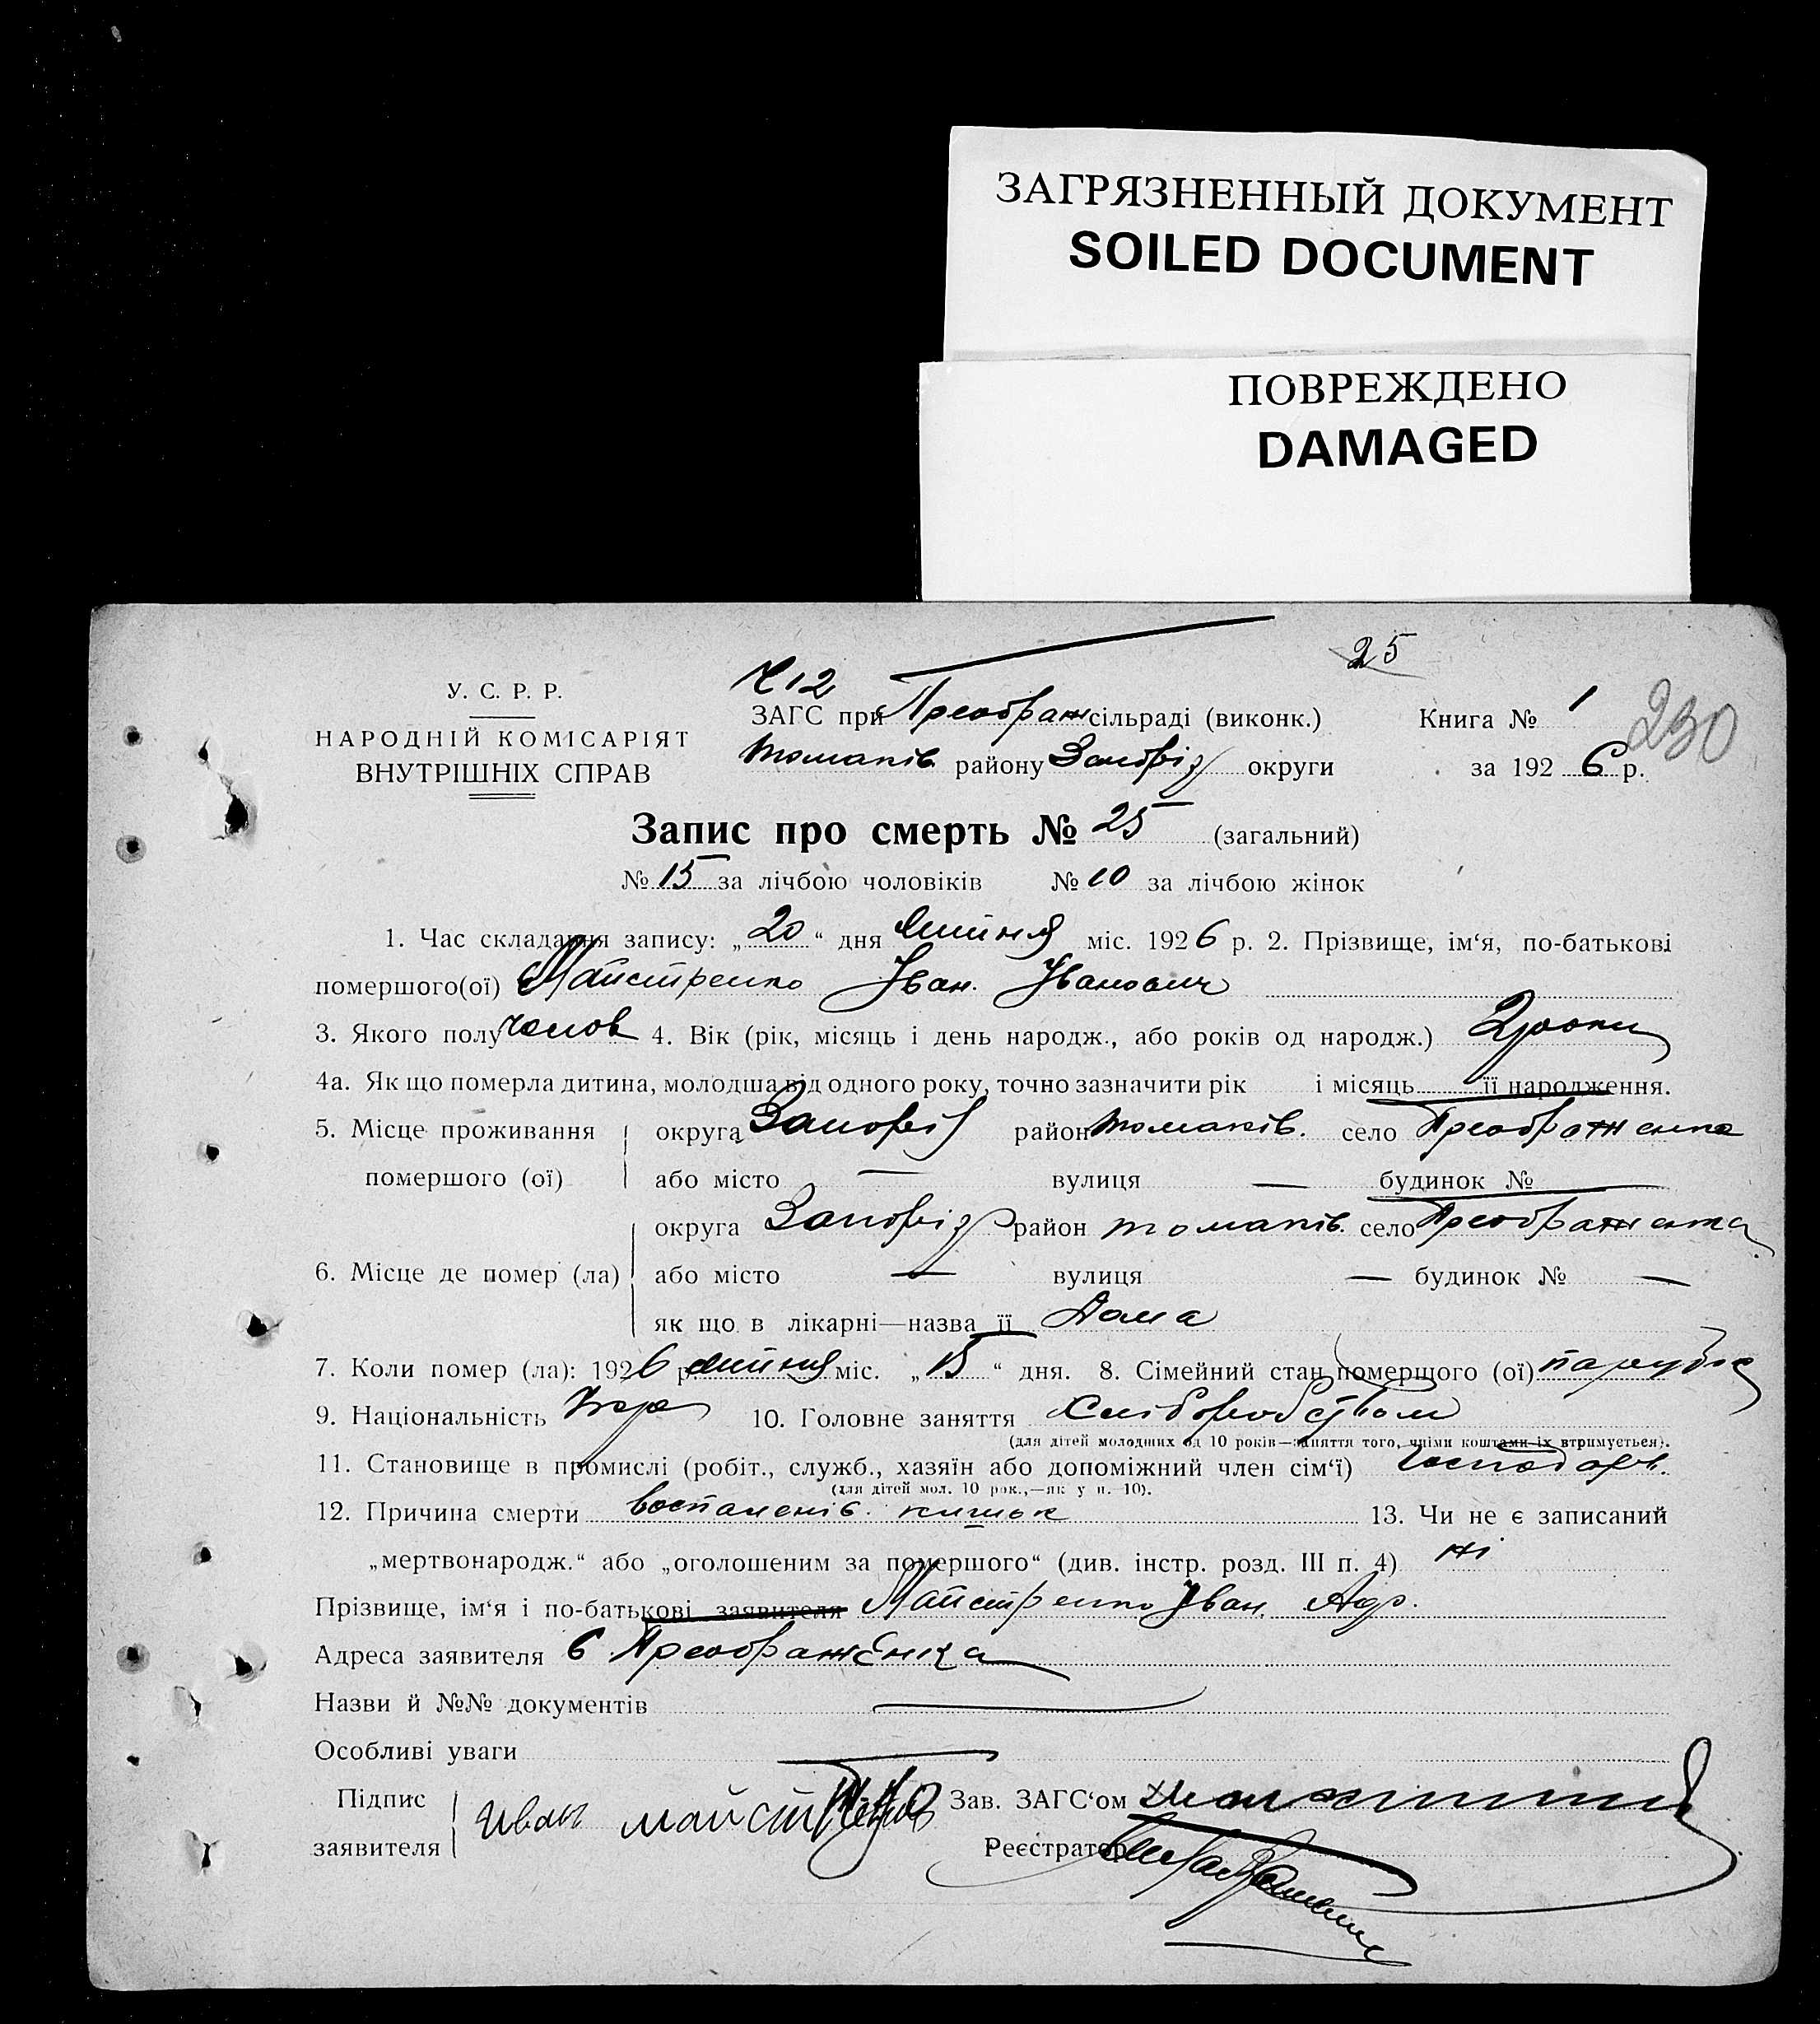 ЗАГРЯЗНЕННЫЙ ДОКУМЕНТ
SOILED DOCUMENT
ПОВРЕЖДЕНО
DAMAGED
25
У. С. Р. Р.
НАРОДНІЙ КОМІСАРІЯТ
ВНУТРІШНІХ СПРАВ
ЗАГС при Преображ сільраді (виконк.)
Томаків. району Запоріз округи
Книга № 1
230
за 1926 р.
Запис про смерть № 25 (загальний)
№ 15 за лічбою чоловіків № 10 за лічбою жінок
1. Час складання запису: „20“ дня Липня міс. 1926 р. 2. Прізвище, ім‘я, по-батькові
помершого(ої) Майстренко Іван. Іванович
3. Якого полу Чолов 4. Вік (рік, місяць і день народж., або років од народж.) 2 роки
4а. Як що померла дитина, молодша від одного року, точно зазначити рік і місяць її народження.
5. Місце проживання помершого (ої) округа Запоріз район Томаків. село Преображенка
або місто — вулиця — будинок № —
6. Місце де помер (ла) округа Запоріз район Томаків. село Преображенка
або місто — вулиця — будинок № —
як що в лікарні—назва її Дома
7. Коли помер (ла): 1926 р Липня міс. „15“ дня. 8. Сімейний стан помершого (ої) парубок
9. Національність Укр 10. Головне заняття Хліборобством
(для дітей молодших од 10 років—заняття того, чиїми коштами їх втримується).
11. Становище в промислі (робіт., служб., хазяїн або допоміжний член сім‘ї) Господар.
(для дітей мол. 10 рок.,—як у п. 10).
12. Причина смерти воспаленів. кишок 13. Чи не є записаний
„мертвонародж.“ або „оголошеним за помершого“ (див. інстр. розд. III п. 4) ні
Прізвище, ім‘я і по-батькові заявителя Майстренко Іван. Адр.
Адреса заявителя с Преображенка
Назви й №№ документів —
Особливі уваги
Підпис заявителя Иван майстренко Зав. ЗАГС‘ом
Реєстратор